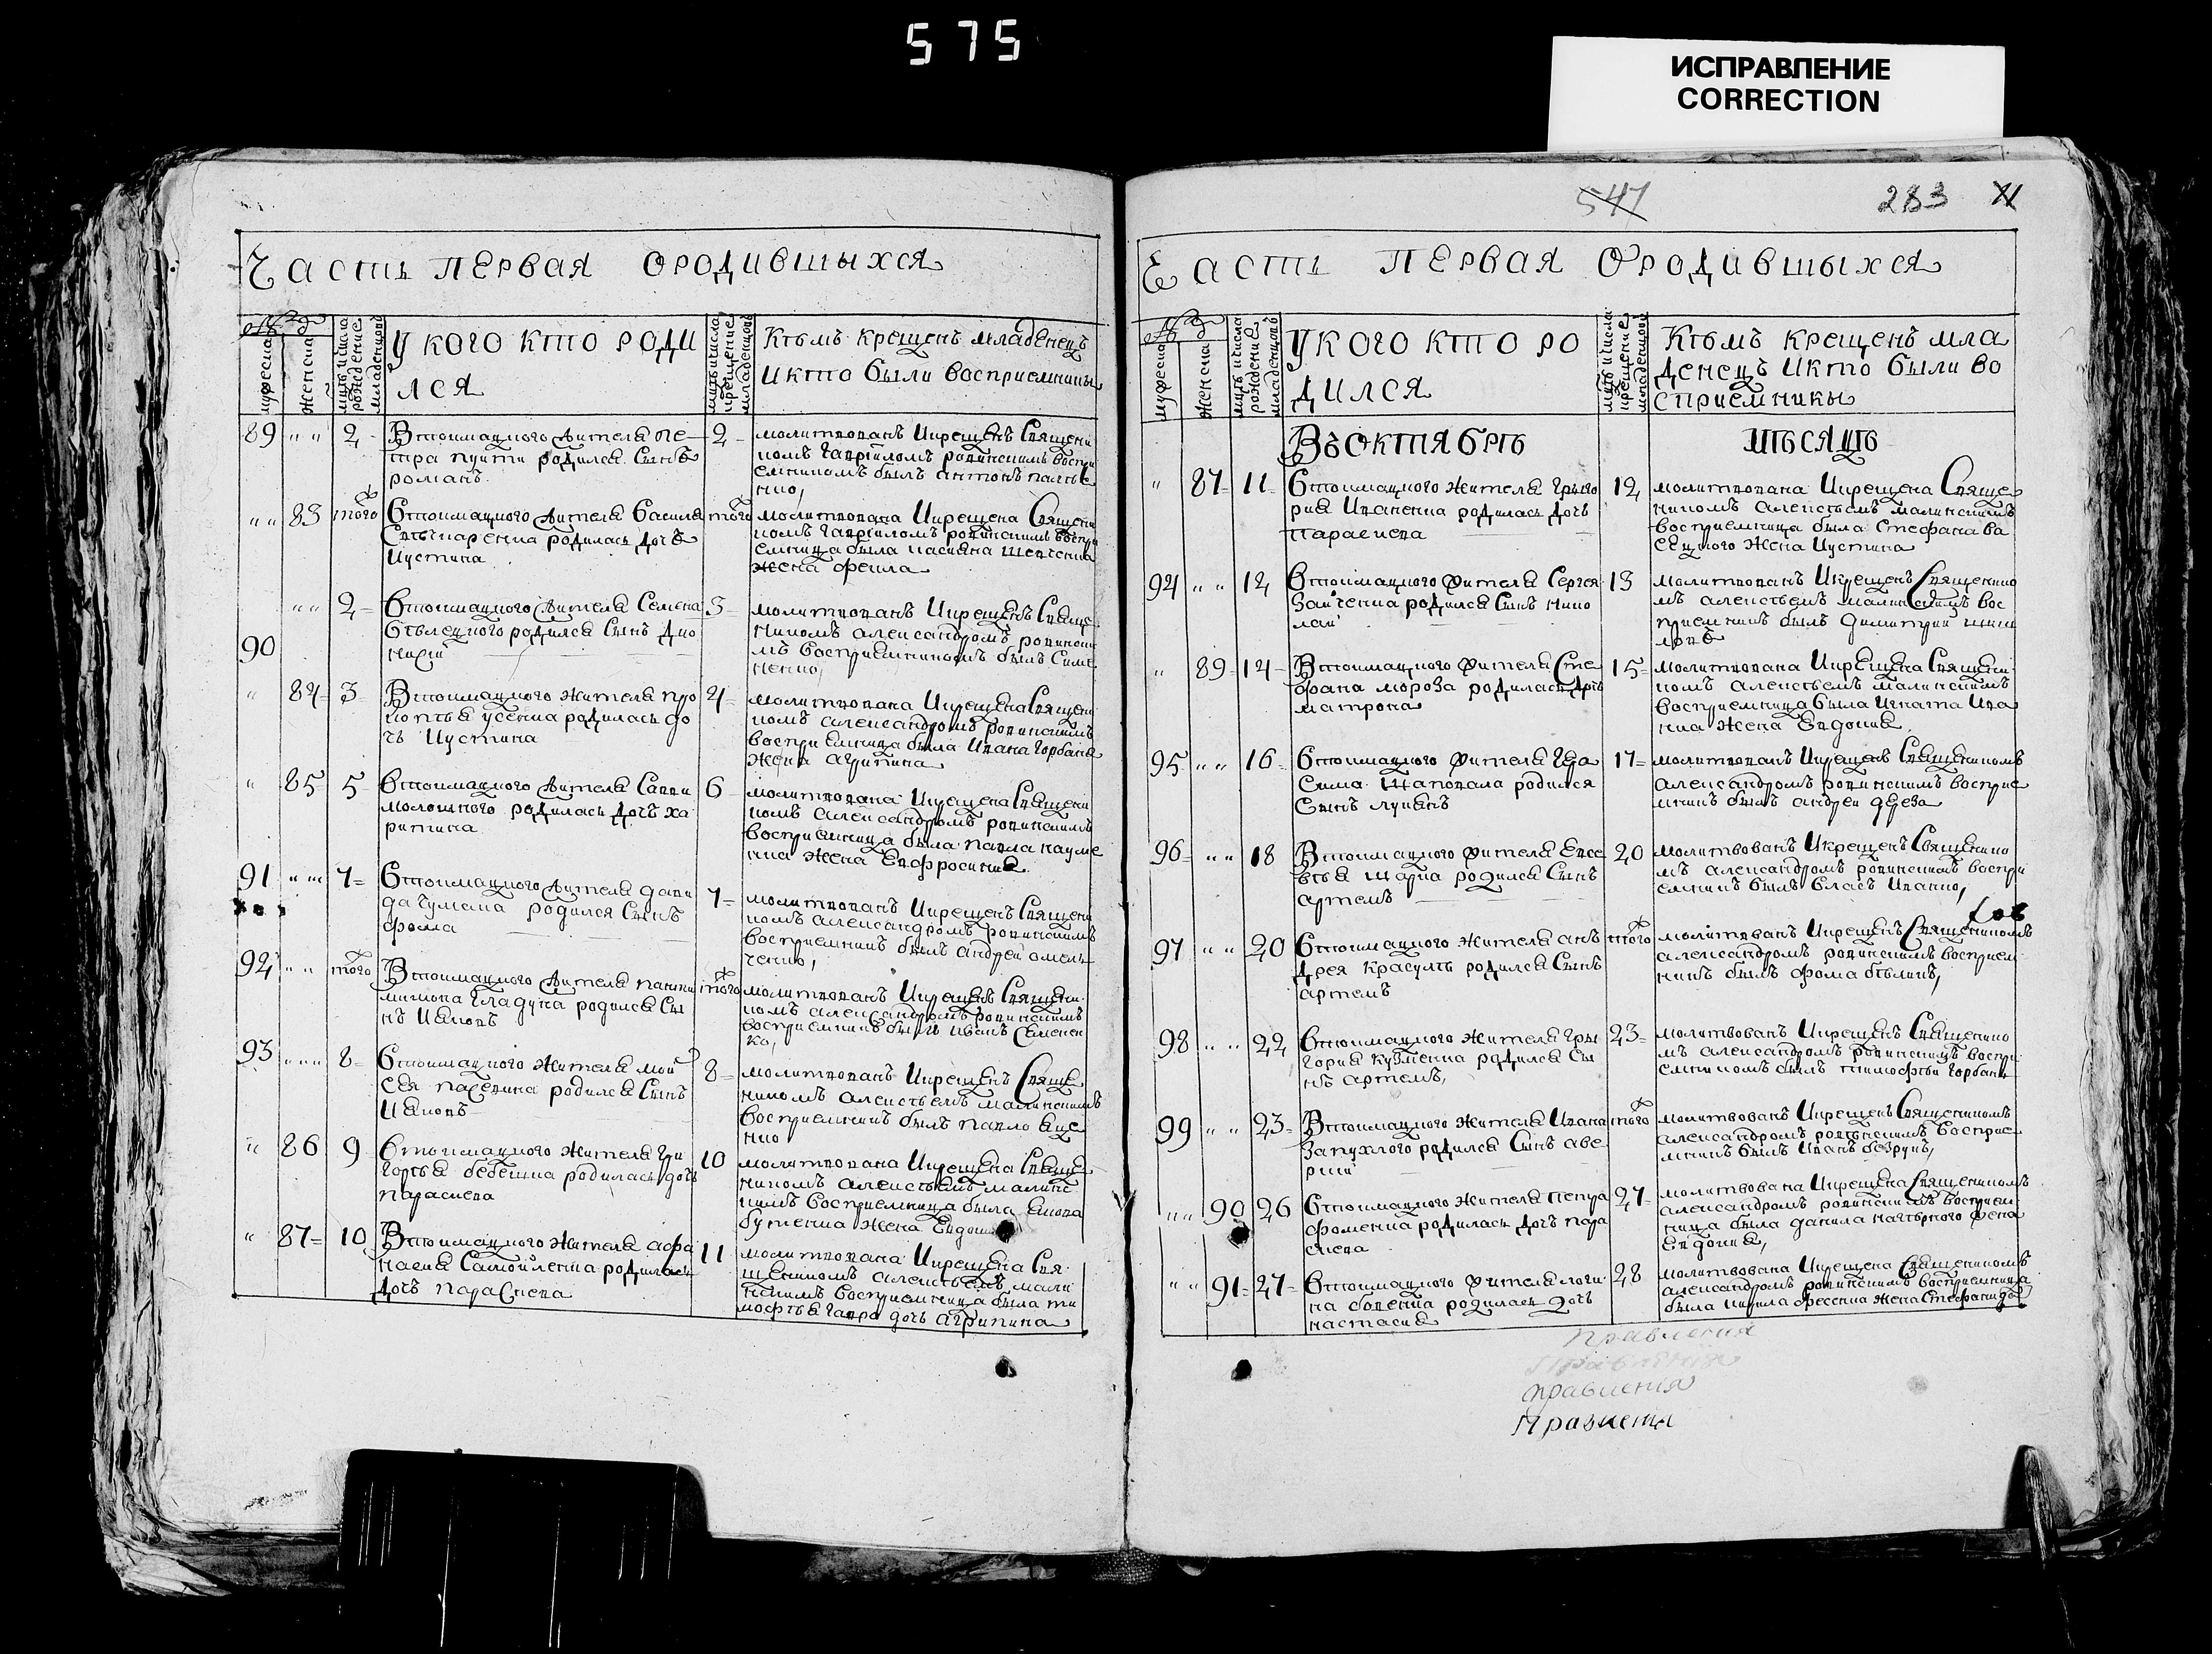 575
ИСПРАВЛЕНИЕ
CORRECTION
Часть первая ородившыхся
№
мужеска
женска
мцъ и числа
рождение
младенцовъ
у кого кто роди
лся
мцъ и числа
крещение
младенцовъ
Кѣмъ крещенъ младенецъ
и кто были восприемники
89 " " 2 Втоимацкого жителя пе
тра пушти родился сынъ
романъ
2 молитвованъ икрещенъ священи
комъ гавріиломъ ровинскимъ воспри
емникомъ былъ антонъ
" " 83 того Втоимацкого жителя василя
родилась дочъ
иустина
того молитвована икрещена священи
комъ гавріиломъ ровинскимъ воспри
емница была
жена фекла
90 " " 2 Втоимацкого жителя семена
бѣлецкого родился сынъ дио
нисій
3 молитвованъ икрещенъ священ
никомъ александромъ ровински
мъ восприемникомъ былъ
" 84 3 Втоимацкого жителя про
копъя усенка родилась до
чъ иустина
4 молитвована икрещена священи
комъ александромъ ровинскимъ
восприемница была ивана горбаня
жена агрипина
" 85 5 Втоимацкого жителя савви
молошного родилась дочъ ха
ритина
6 молитвована икрещена священи
комъ александромъ ровинскимъ
восприемница была павла науме
нка жена евфросиния
91 " " 7 Втоимацкого жителя дави
да чумака родился сынъ
фома
7 молитвованъ икрещенъ священи
комъ александромъ ровинскимъ
восприемникъ былъ андрей омель
ченко
92 " " того Втоимацкого жителя
гладуна родился сы
нъ иаковъ
того молитвованъ икрещенъ священи
комъ александромъ ровинскимъ
восприемникъ былъ иванъ семенен
ко
93 " " 8 Втоимацкого жителя мой
сея пасечника родился сынъ
иаковъ
8 молитвованъ икрещенъ священ
никомъ алексѣемъ малинскимъ
восприемникъ былъ павло яце
нко
" 86 9 Втоимацкого жителя гри
горъя бебешка родилась дочъ
параскева
10 молитвована икрещена священ
никомъ алексѣемъ малинс
кимъ восприемница была якова
бутенка жена евдокия
" 87 10 Втоимацкого жителя афа
насия самойленка родилась
дочъ параскева
11 молитвована икрещена свя
щенникомъ алексѣемъ мали
нскимъ восприемница была ти
мофѣя гавра дочъ агрипина
541 283
Часть первая ородившыхся
№
мужеска
женска
мцъ и числа
рождение
младенцовъ
у кого кто ро
дился
мцъ и числа
крещение
младенцовъ
Кѣмъ крещенъ мла
денецъ и кто были во
сприемники
Въ октябрѣ мѣсяцѣ
" 87 11 Втоимацкого жителя григо
рия иваненка родилась дочъ
параскева
12 молитвована икрещена священ
никомъ алексѣемъ малинскимъ
восприемница была стефана ва
сецкого жена иустина
94 " " 12 Втоимацкого жителя сергея
заиченка родился сынъ нико
лай
13 молитвованъ икрещенъ священнико
мъ алексѣемъ малинскимъ вос
приемникъ былъ димитрий
" 89 14 Втоимацкого жителя сте
фана мороза родилась дочъ
матрона
15 молитвована икрещена священи
комъ алексѣемъ малинскимъ
восприемница была игната ива
нка жена евдокия
95 " " 16 Втоимацкого жителя гера
сима шаповала родился
сынъ лукиянъ
17 молитвованъ икрещенъ священикомъ
александромъ ровинскимъ восприе
мникъ былъ андрей дереза
96 " " 18 Втоимацкого жителя евсе
вѣя шарка родился сынъ
артемъ
20 молитвованъ икрещенъ священико
мъ александромъ ровинскимъ воспри
емникъ былъ власъ иванко
97 " " 20 Втоимацкого жителя анъ
дрея красулѣ родился сынъ
артемъ
того молитвованъ икрещенъ священикомъ
александромъ ровинскимъ восприем
никъ былъ фома бѣликъ
98 " " 22 Втоимацкого жителя гри
гория кузменка родился сы
нъ артемъ
23 молитвованъ икрещенъ священико
мъ александромъ ровинскимъ воспри
емникомъ былъ тимофѣй горбань
99 " " 23 Втоимацкого жителя ивана
запухлого родился сынъ аве
ркий
того молитвованъ икрещенъ священикомъ
александромъ ровинскимъ восприе
мникъ былъ иванъ безрукъ
" " 90 26 Втоимацкого жителя петра
фоменка родилась дочъ пара
скева
27 молитвована икрещена священикомъ
александромъ ровинскимъ восприем
ница была данила жена
евдокия
" " 91 27 Втоимацкого жителя логи
на родилась дочъ
настасия
28 молитвована икрещена священикомъ
александромъ ровинскимъ восприемница
была жена стефанида
Правления
Правления
правления
Правлени